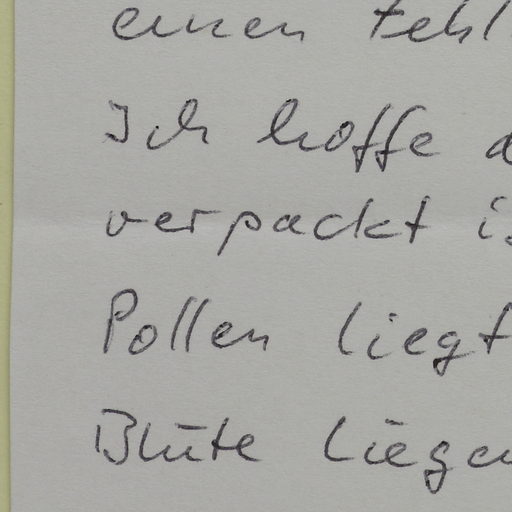 einen Fehl
Ich hoffe d
verpackt is
Pollen liegt
Blüte liegen